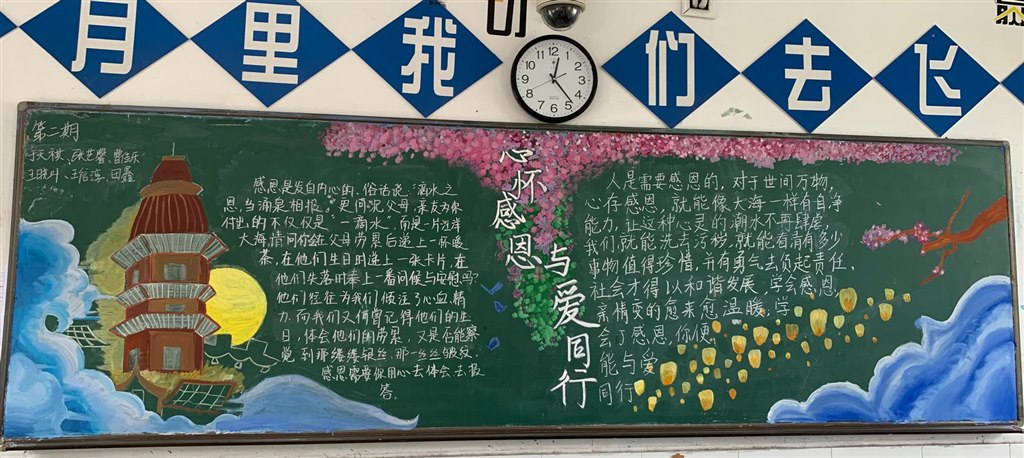 月里我们去飞
12 1 2 3 4 5 6 7 8 9 10 11
第二期
心怀感恩
与爱同行
感恩是发自内心的。俗话说"滴水之
恩,当涌泉相报。"更何况父母,亲友为你
付出的不仅仅是"一滴水",而是一片汪洋
大海,请问你会在父母劳累后递上一杯暖
茶,在他们生日时递上一张卡片,在
他们失落时奉上一番问候与安慰吗?
他们往往为我们倾注了心血、精
力,而我们又何曾记得他们的生
日,体会他们的劳累,又是否能察
觉到那缕缕银丝,那一丝丝皱纹。
感恩需要你用心去体会去报
答。
人是需要感恩的,对于世间万物,
心存感恩,就能像大海一样有自净
能力,让这种心灵的潮水不再肆虐,
我们就能洗去污秽,就能看清有多少
事物值得珍惜,并有勇气去负起责任,
社会才得以和谐发展,学会感恩,
亲情变的愈来愈温暖,学
会了感恩,你便
能与爱
同行